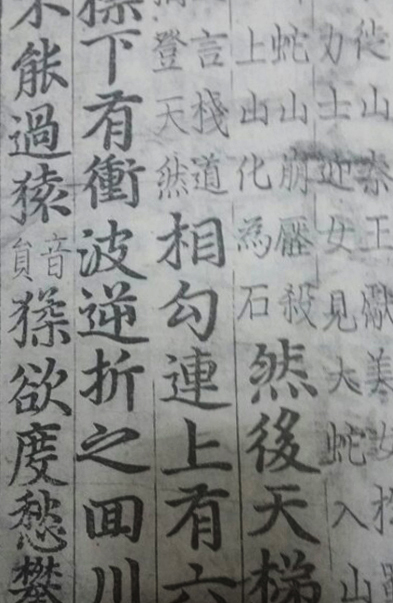 徙山秦王獻美女扵
力士迎女見大蛇入山
蛇山崩壓殺
上山化為石
然後天梯
言棧道
登天然
相勾連上有六
標下有衝波逆折之囬川
不能過猿
音
員
猱欲度愁攀